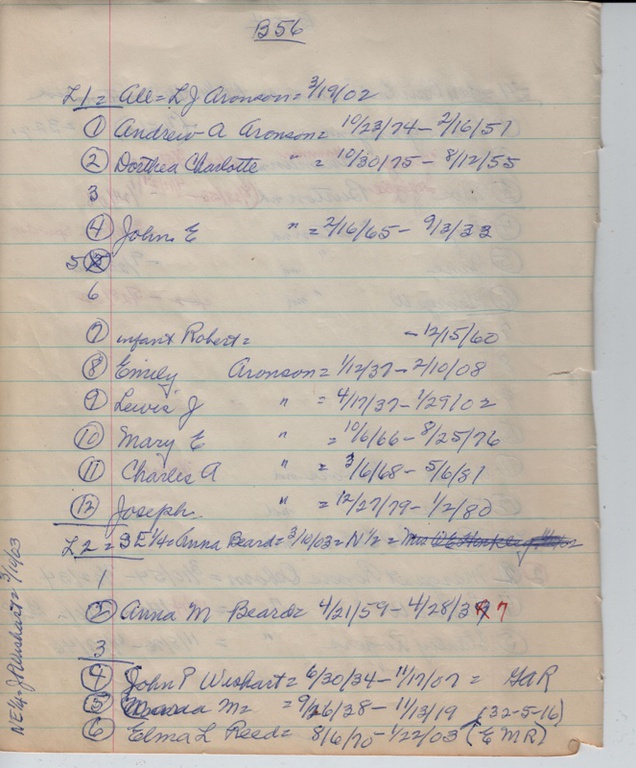 B56
L1 = All = L J Aronson = 3/19/02
① Andrew A Aronson = 10/23/74 - 2/16/51
② Dorthea Charlotte " = 10/30/75 - 8/12/55
3
④ John E " = 2/16/65 - 9/3/33
5
6
⑦ infant Robert = - 12/15/60
⑧ Emily Aronson = 1/12/37 - 2/10/08
⑨ Lewis J " = 4/17/37 - 1/29/02
⑩ Mary E " = 10/6/66 - 8/25/76
⑪ Charles A " = 3/6/68 - 5/6/81
⑫ Joseph " = 12/27/79 - 1/2/80
L2 = SE 1/4 = Anna Beard = 3/10/03 = N 1/2 =
1
② Anna M Beard = 4/21/59 - 4/28/3 7
3
④ John P Wishart = 6/30/34 - 11/17/07 = GAR
⑤ Maria M = 9/26/38 - 11/13/19 (32-5-16)
⑥ Elma L Reed = 8/6/70 - 1/22/03 (E M R)
NE 1/4 = J P Wishart = 3/10/03